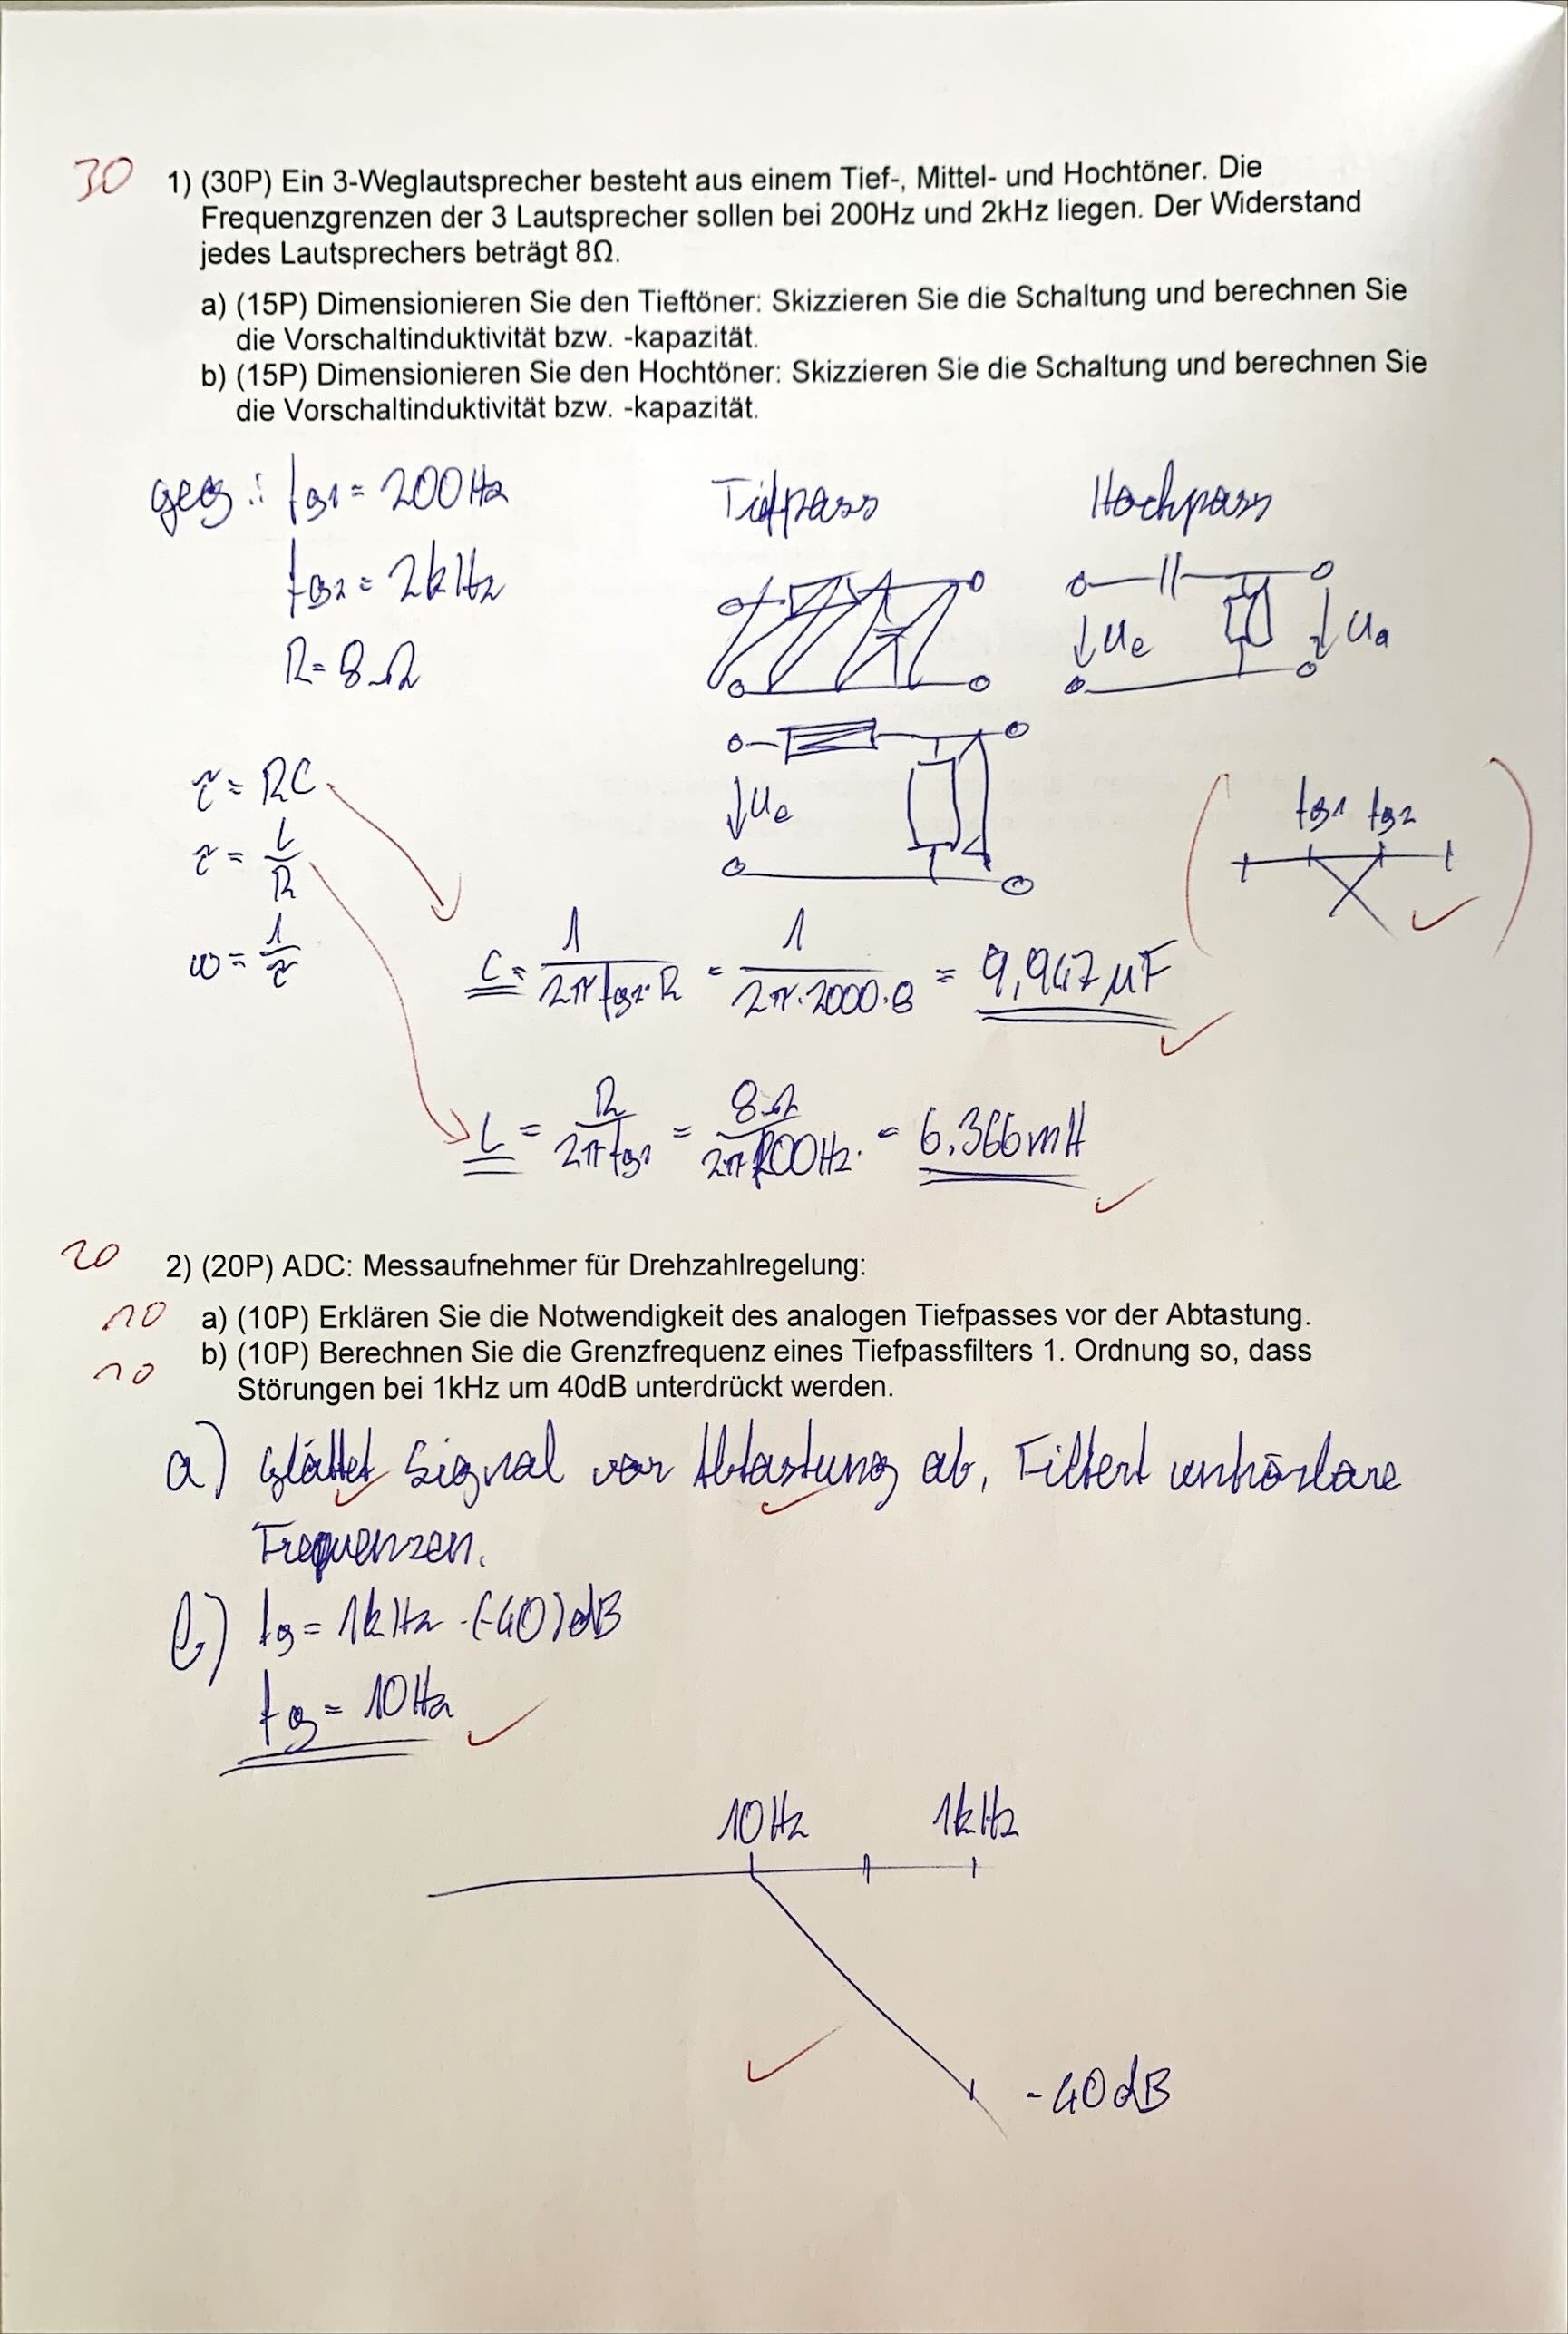 30
1) (30P) Ein 3-Weglautsprecher besteht aus einem Tief-, Mittel- und Hochtöner. Die
Frequenzgrenzen der 3 Lautsprecher sollen bei 200Hz und 2kHz liegen. Der Widerstand
jedes Lautsprechers beträgt 8Ω.
a) (15P) Dimensionieren Sie den Tieftöner: Skizzieren Sie die Schaltung und berechnen Sie
die Vorschaltinduktivität bzw. -kapazität.
b) (15P) Dimensionieren Sie den Hochtöner: Skizzieren Sie die Schaltung und berechnen Sie
die Vorschaltinduktivität bzw. -kapazität.
geg.: fg1 = 200Hz
fg2 = 2kHz
R = 8Ω
Tiefpass
Hochpass
Ue
Ua
Ue
τ = RC
τ = L/R
ω = 1/τ
fg1 fg2
C = 1/(2π fg2·R) = 1/(2π·2000·8) = 9,947µF
L = R/(2π fg1) = 8Ω/(2π200Hz) = 6,366mH
20
2) (20P) ADC: Messaufnehmer für Drehzahlregelung:
10
a) (10P) Erklären Sie die Notwendigkeit des analogen Tiefpasses vor der Abtastung.
10
b) (10P) Berechnen Sie die Grenzfrequenz eines Tiefpassfilters 1. Ordnung so, dass
Störungen bei 1kHz um 40dB unterdrückt werden.
a) Glättet Signal vor Abtastung ab, Filtert unhörbare
Frequenzen.
b) fg = 1kHz ·(-40)dB
fg = 10Hz
10Hz 1kHz
-40dB